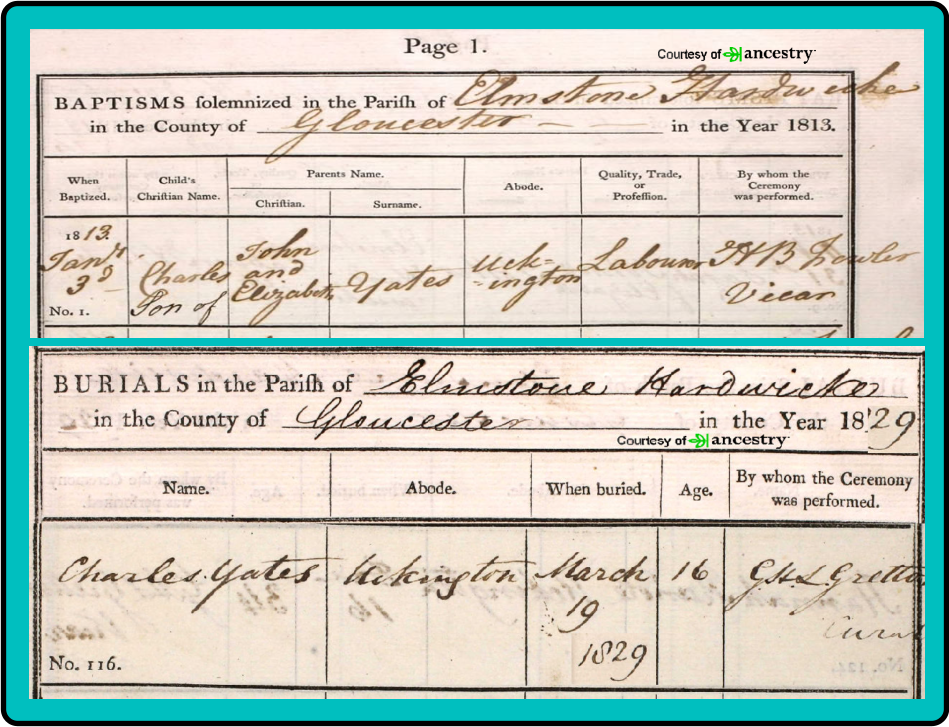 Page 1.
Courtesy of ancestry
BAPTISMS solemnized in the Parish of Elmstone Hardwicke
in the County of Gloucester in the Year 1813.
When Baptized.
Child's Christian Name.
Parents Name.
Christian.
Surname.
Abode.
Quality, Trade, or Profession.
By whom the Ceremony was performed.
1813.
Jany
3d
No. 1.
Charles
Son of
John
and
Elizabeth
Yates
Uck-
-ington
Labourer
H B Fowler
Vicar
BURIALS in the Parish of Elmstone Hardwicke
in the County of Gloucester in the Year 1829
Courtesy of ancestry
Name.
Abode.
When buried.
Age.
By whom the Ceremony
was performed.
Charles Yates
Uckington
March
19
1829
16
Gretton
Curat
No. 116.